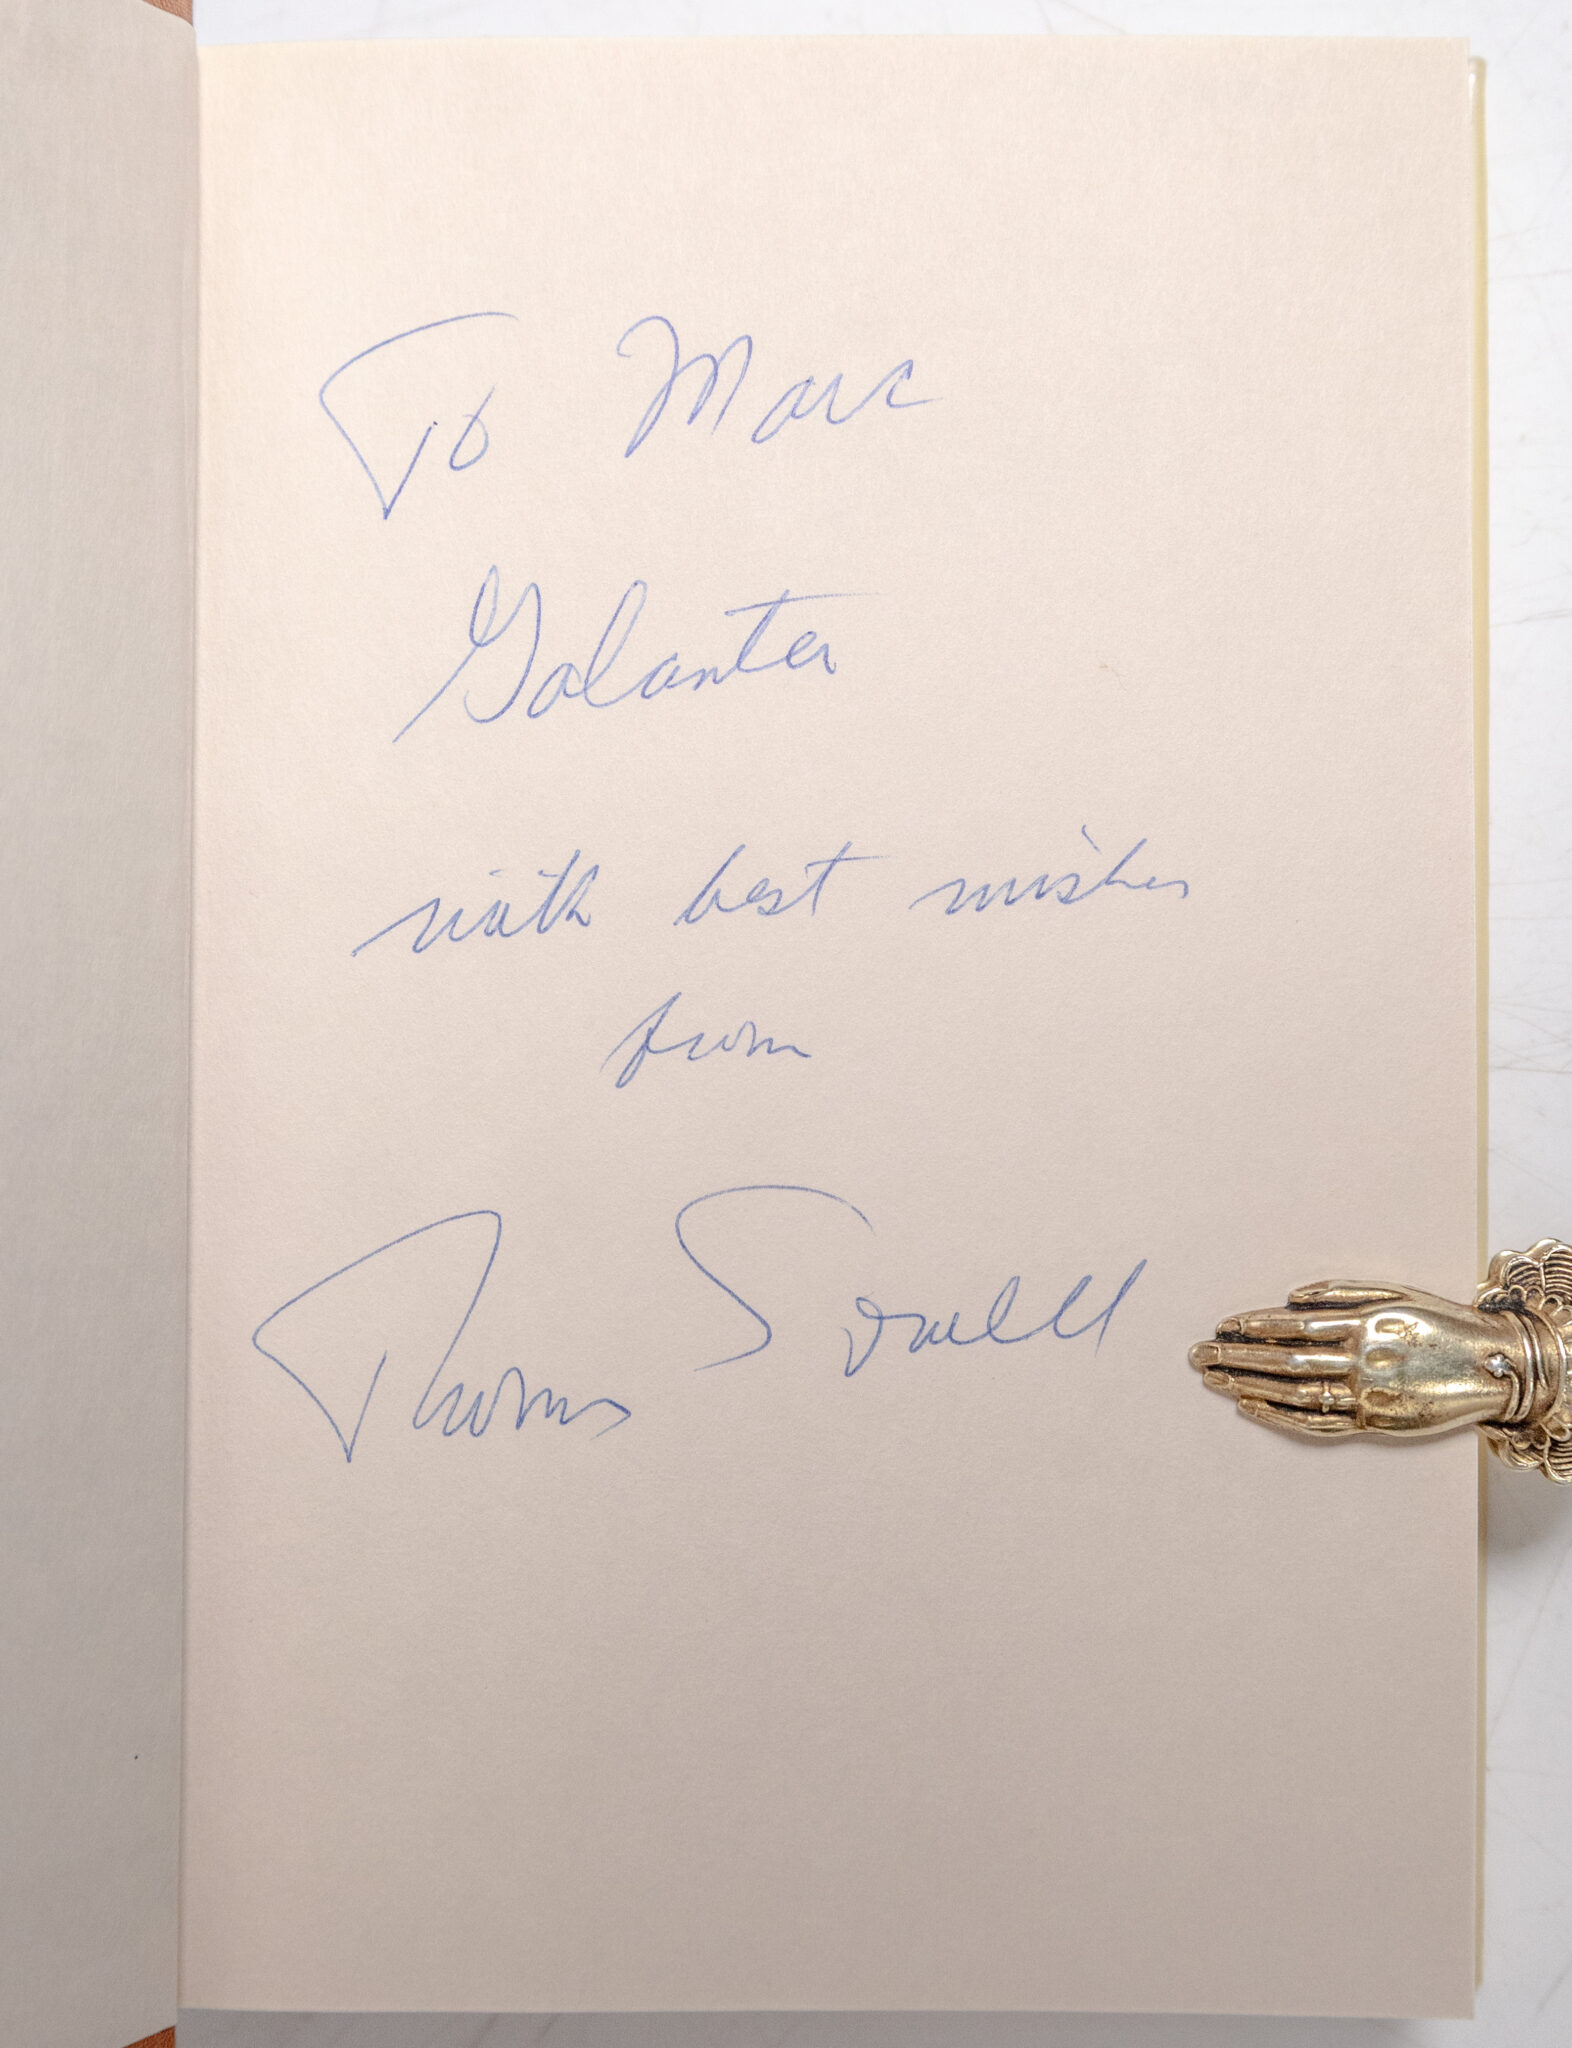 To Marc
Galanter
with best wishes
from
Thomas Sowell